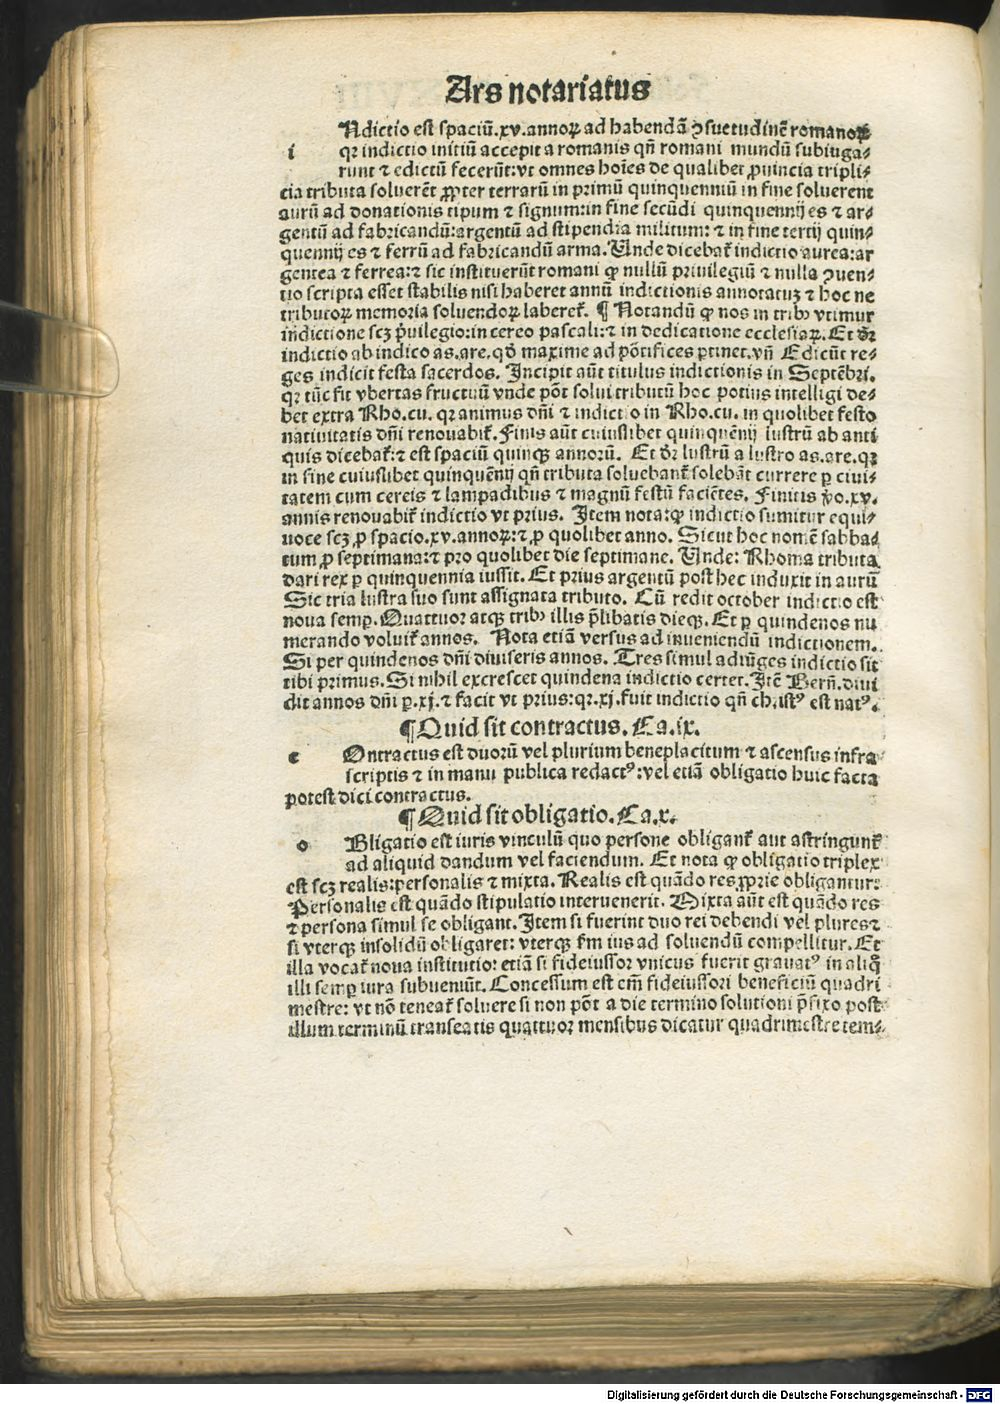 Ars notariatus
Ndictio est spaciū.xv.annoꝝ ad habendā ꝯsuetudinē romanoꝝ
i qꝛ indictio initiū accepit a romanis qn̄ romani mundū subiuga⸗
runt ⁊ edictū fecerūt:vt omnes hoīes de qualibet ꝓuincia tripli⸗
cia tributa soluerēt ꝓpter terrarū in primū quinquenniū in fine soluerent
aurū ad donationis tipum ⁊ signum:in fine secūdi quinquennij es ⁊ ar⸗
gentū ad fabricandū:argentū ad stipendia militum: ⁊ in fine tertij quin⸗
quennij es ⁊ ferrū ad fabricandū arma. Unde dicebat᷑ indictio aurea:ar
gentea ⁊ ferrea:⁊ sic instituerūt romani ꝙ nullū priuilegiū ⁊ nulla ꝯuen⸗
tio scripta esset stabilis nisi haberet annū indictionis annotatuꝫ ⁊ hoc ne
tributoꝝ memoria soluendoꝝ laberet᷑. ¶ Notandū ꝙ nos in tribꝰ vtimur
indictione scꝫ p̄uilegio:in cereo pascali:⁊ in dedicatione ecclesiaꝝ. Et dr̄
indictio ab indico as.are.qd̄ maxime ad pōtifices ꝑtinet.vn̄ Edicūt re⸗
ges indicit festa sacerdos. Incipit aūt titulus indictionis in Septēbri.
qꝛ tūc fit vbertas fructuū vnde pōt solui tributū hoc potius intelligi de⸗
bet extra Rho.cu. qꝛ animus dn̄i ⁊ indictio in Rho.cu. in quolibet festo
natiuitatis dn̄i renouabit᷑. Finis aūt cuiuslibet quinquēnij lustrū ab anti
quis dicebat᷑:⁊ est spaciū quinqꝫ annorū. Et dr̄ lustrū a lustro as.are.qꝛ
in fine cuiuslibet quinquēnij qn̄ tributa soluebant᷑ solebāt currere ꝑ ciui⸗
tatem cum cereis ⁊ lampadibus ⁊ magnū festū faciētes. Finitis ꝟo.xv.
annis renouabit᷑ indictio vt prius. Item nota:ꝙ indictio sumitur equi⸗
uoce scꝫ ꝓ spacio.xv.annoꝝ:⁊ ꝓ quolibet anno. Sicut hoc nomē sabba⸗
tum ꝓ septimana:⁊ pro quolibet die septimane. Unde: Rhoma tributa
dari rex ꝑ quinquennia iussit. Et prius argentū post hec induxit in aurū
Sic tria lustra suo sunt assignata tributo. Cū redit october indictio est
noua semꝑ. Quattuor atqꝫ tribꝰ illis p̄libatis dieqꝫ. Et ꝑ quindenos nu
merando voluit᷑ annos. Nota etiā versus ad inueniendū indictionem.
Si per quindenos dn̄i diuiseris annos. Tres simul adiūges indictio sit
tibi primus. Si nihil excrescet quindena indictio certet. Itē Bern̄.diui
dit annos dn̄i ꝑ.xj.⁊ facit vt prius:qꝛ.xj.fuit indictio qn̄ christꝰ est natꝰ.
¶ Quid sit contractus. Ca.ix.
c Ontractus est duorū vel plurium beneplacitum ⁊ ascensus infra
scriptis ⁊ in manu publica redactꝰ:vel etiā obligatio huic facta
potest dici contractus.
¶ Quid sit obligatio. Ca.x.
o Bligatio est iuris vinculū quo persone obligant᷑ aut astringunt᷑
ad aliquid dandum vel faciendum. Et nota ꝙ obligatio triplex
est scꝫ realis:personalis ⁊ mixta. Realis est quādo res ꝓprie obligantur:
Personalis est quādo stipulatio interuenerit. Mixta aūt est quādo res
⁊ persona simul se obligant. Item si fuerint duo rei debendi vel plures⁊
si vterqꝫ insolidū obligaret: vterqꝫ fm̄ ius ad soluendū compellitur. Et
illa vocat᷑ noua institutio: etiā si fideiussor vnicus fuerit grauatꝰ in aliqͦ
illi semꝑ iura subueniūt. Concessum est em̄ fideiussori beneficiū quadri
mestre: vt nō teneat᷑ soluere si non pōt a die termino solutioni p̄fixo post
illum terminū transeatis quattuor mensibus dicatur quadrimestre tem⸗
Digitalisierung gefördert durch die Deutsche Forschungsgemeinschaft - DFG